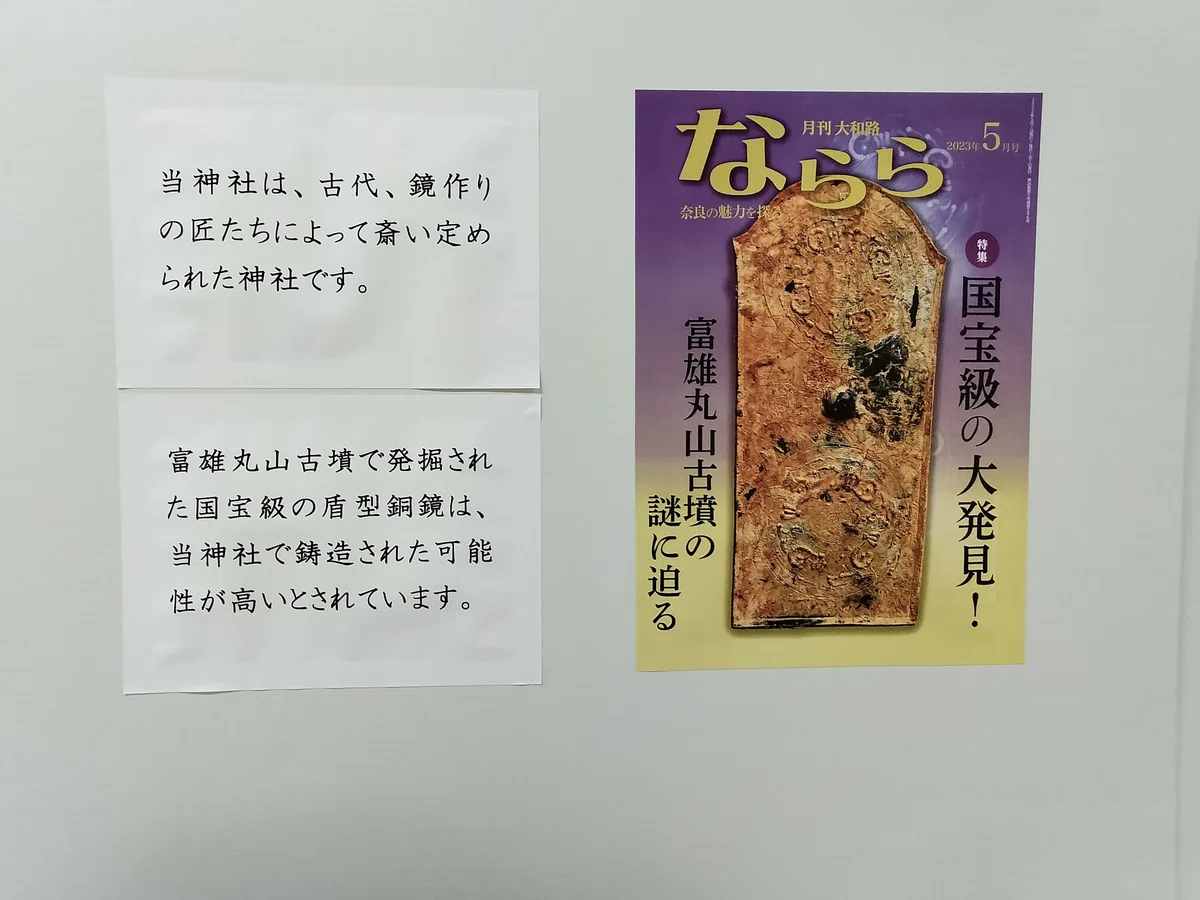 当神社は、古代、鏡作り
の匠たちによって斎い定め
られた神社です。
富雄丸山古墳で発掘され
た国宝級の盾型銅鏡は、
当神社で鋳造された可能
性が高いとされています。
月刊 大和路
ならら
2023年5月号
奈良の魅力を探る
特集
国宝級の大発見！
富雄丸山古墳の
謎に迫る